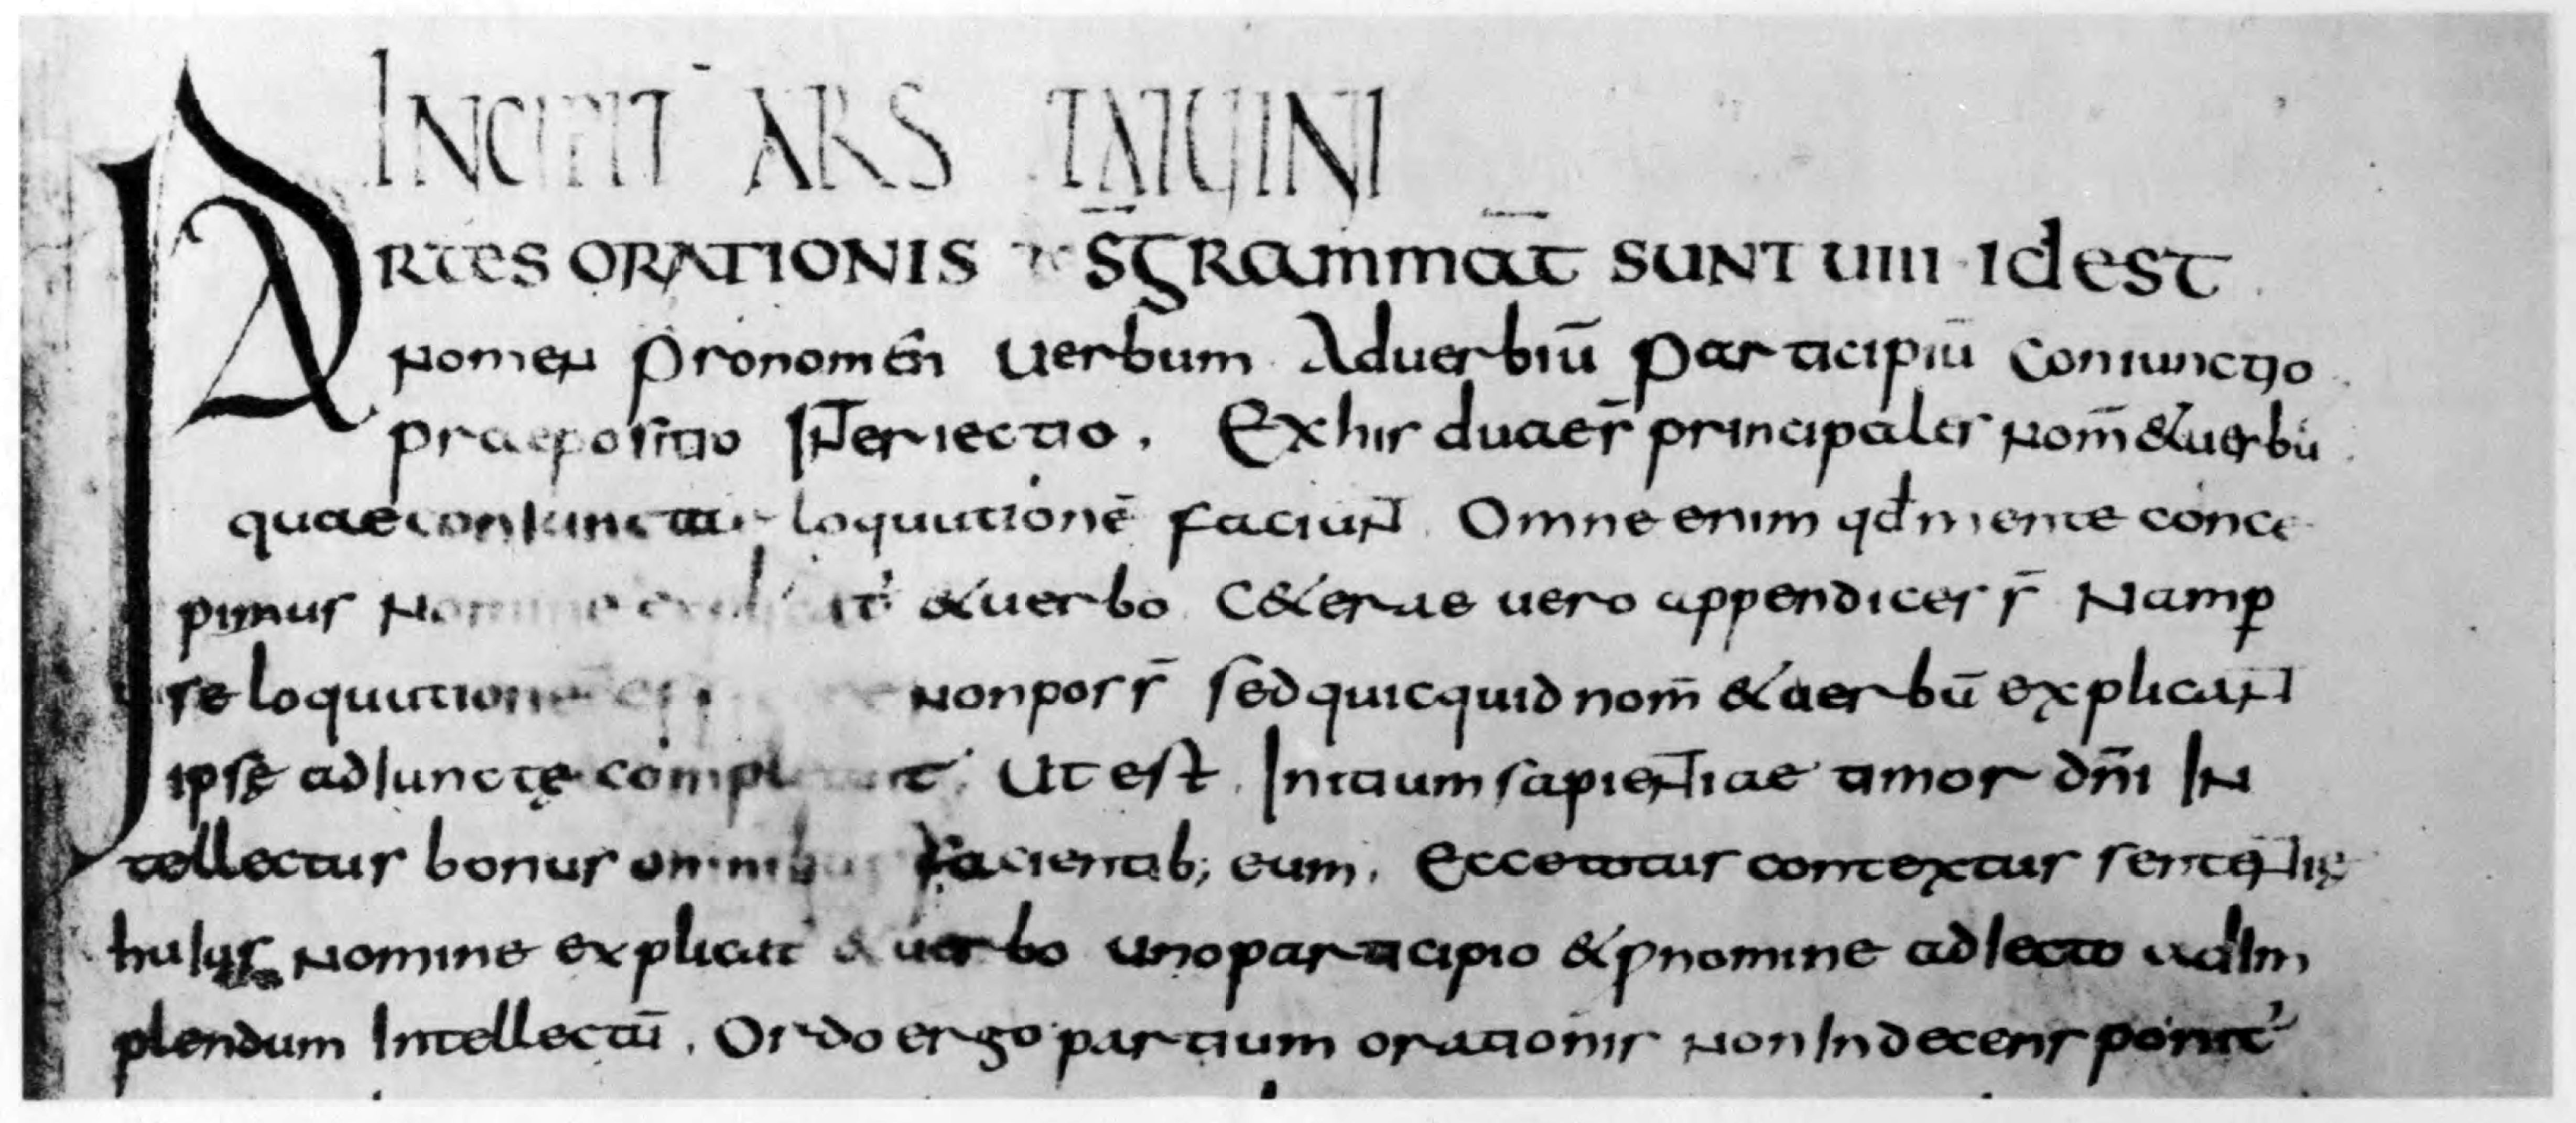 INCIPIT ARS TATUINI
PARTES ORATIONIS S̄GRAMMAT̄ SUNT UIII IDEST
Nomen Pronomen̄ Uerbum Aduerbiū Participiū Coniunctio
praepositio INTeriectio. Ex his duae s̄ principales Nom̄ & uerbū
quae coniunctae loquutionē faciunt. Omne enim qđ mente conce
pimus Nomine & uerbo. C&erae uero appendices s̄ Namp̱
se loquutionē Non poss̄ sed quicquid nom̄ & uerbū explicant
ipsę adiunctę complent. Ut est. Initium sapientiae timor dn̄i IN
tellectus bonus omnibus facientib; eum. Ecce totus contextus sententię
huius Nomine explicat' & uerbo uno participio & pnomine adiecto ad Im
plendum Intellectū. Ordo ergo partium orationis Non Indecens ponit'